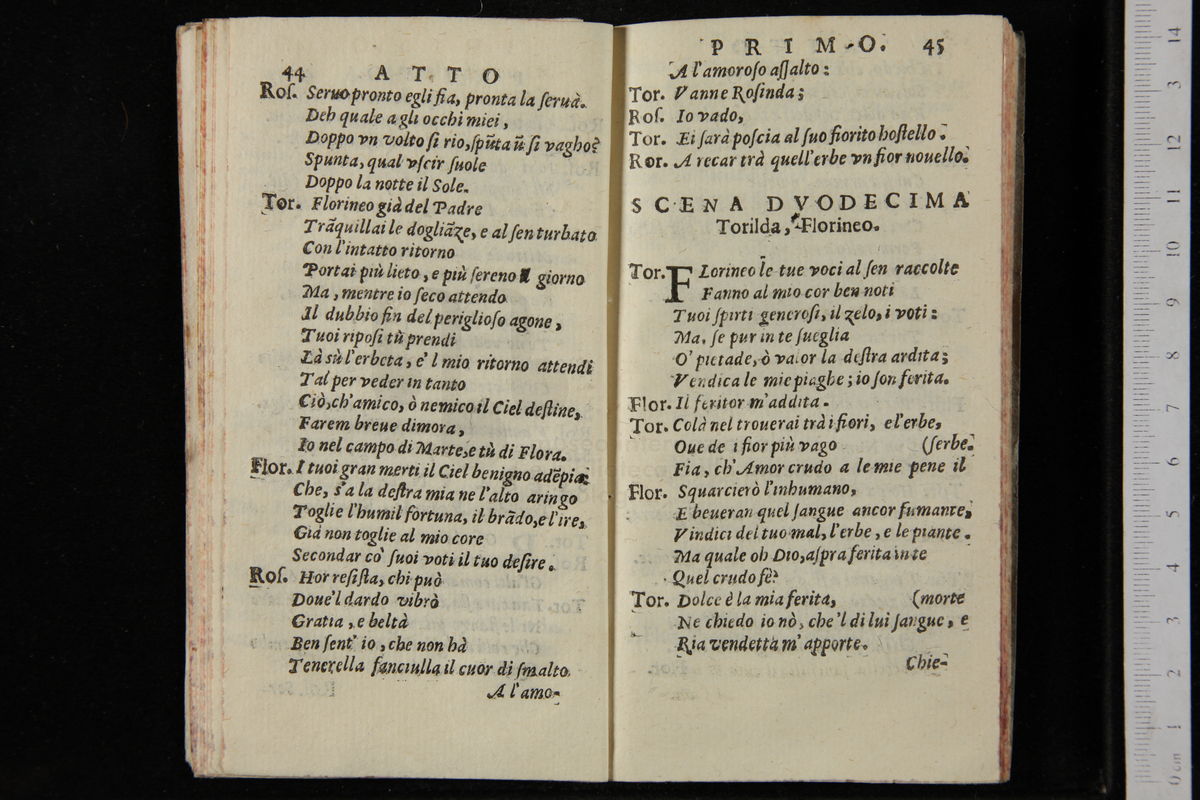 44 ATTO
Roſ. Seruo pronto egli ſia, pronta la ſeruà.
Deh quale a gli occhi miei,
Doppo vn volto ſi rio, ſpũta ũ ſi vagho?
Spunta, qual vſcir ſuole
Doppo la notte il Sole.
Tor. Florineo già del Padre
Trãquillai le dogliãze, e al ſen turbato
Con l'intatto ritorno
Portai più lieto, e più ſereno il giorno
Ma, mentre io ſeco attendo
Il dubbio fin del periglioſo agone,
Tuoi ripoſi tù prendi
Là sù l'erbeta, e'l mio ritorno attendi
Tal per veder in tanto
Ciò, ch'amico, ò nemico il Ciel deſtine,
Farem breue dimora,
Io nel campo di Marte, e tù di Flora.
Flor. I tuoi gran merti il Ciel benigno adẽpia:
Che, s'a la deſtra mia ne l'alto aringo
Toglie l'humil fortuna, il brãdo, e l'ire,
Già non toglie al mio core
Secondar co' ſuoi voti il tuo deſire.
Roſ. Hor reſiſta, chi può
Doue'l dardo vibrò
Gratia, e beltà
Ben ſent' io, che non hà
Tenerella fanciulla il cuor di ſmalto
A l'amo-
PRIMO. 45
A l'amoroſo aſſalto:
Tor. Vanne Roſinda;
Roſ. Io vado,
Tor. Ei ſarà poſcia al ſuo fiorito hoſtello.
Ror. A recar trà quell'erbe vn fior nouello.
SCENA DVODECIMA
Torilda, Florineo.
Tor. FLorineo le tue voci al ſen raccolte
Fanno al mio cor ben noti
Tuoi ſpirti generoſi, il zelo, i voti:
Ma, ſe pur in te ſueglia
O' pietade, ò valor la deſtra ardita;
Vendica le mie piaghe; io ſon ferita.
Flor. Il feritor m'addita.
Tor. Colà nel trouerai trà i fiori, e l'erbe,
Oue de i fior più vago (ſerbe.
Fia, ch'Amor crudo a le mie pene il
Flor. Squarcierò l'inhumano,
E beueran quel ſangue ancor fumante,
Vindici del tuo mal, l'erbe, e le piante.
Ma quale oh Dio, aſpra ferita in te
Quel crudo fè?
Tor. Dolce è la mia ferita, (morte
Ne chiedo io nò, che'l di lui ſangue, e
Ria vendetta m'apporte.
Chie-